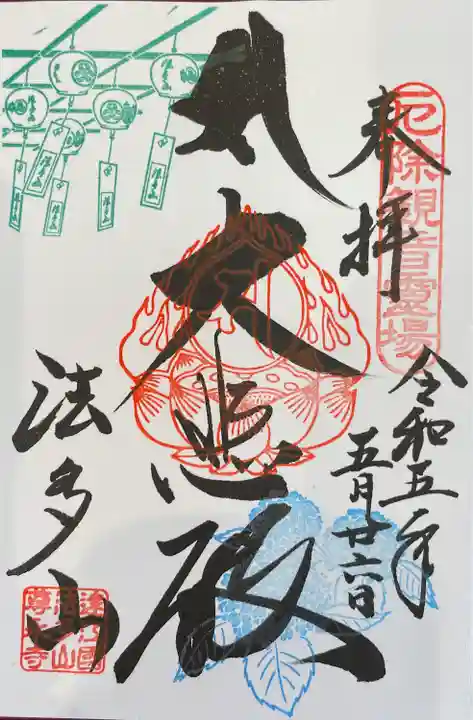 厄除観音霊場
奉拝
令和五年
五月廿六日
大悲殿
法多山
遠江國
法多山
尊永寺